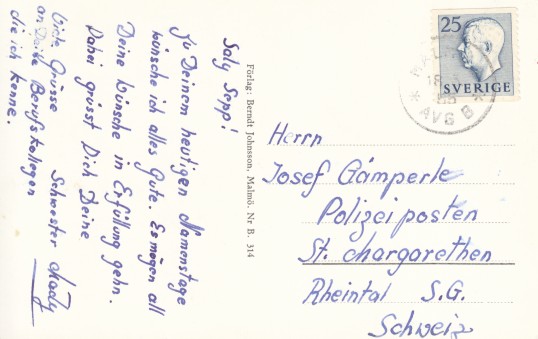 Saly Sepp!
Zu Deinem heutigen Namenstage
wünsche ich alles Gute. Es mögen all
Deine Wünsche in Erfüllung gehn.
Dabei grüsst Dich Deine
Schwester Mady
Viele Grüsse
an Deine Berufskollegen
die ich kenne.
Förlag: Berndt Johnsson, Malmö. Nr B. 314
25
SVERIGE
AVG B
Herrn
Josef Gämperle
Polizeiposten
St. Margarethen
Rheintal S.G.
Schweiz